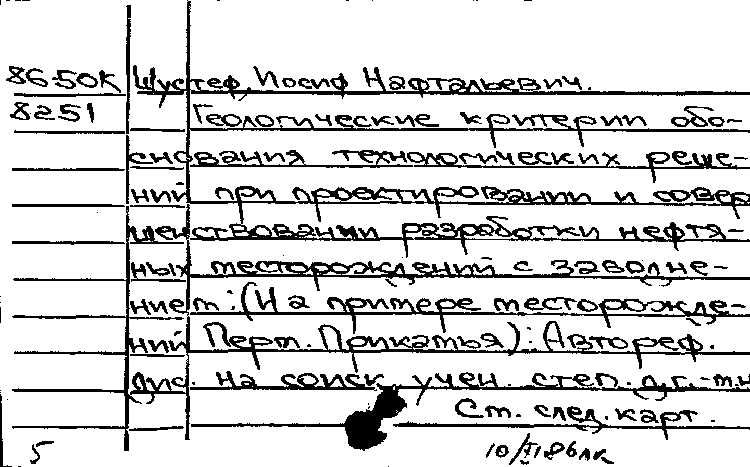 86-50К Шустеф, Иосиф Нафтальевич.
8251 Геологические критерии обо-
снования технологических реше-
ний при проектировании и совер
шенствовании разработки нефтя-
ных месторождений с заводне-
нием: (На примере месторожде-
ний Перм. Прикамья): Автореф.
дис. на соиск. учен. степ. д.г.-м.н
См. след. карт.
5